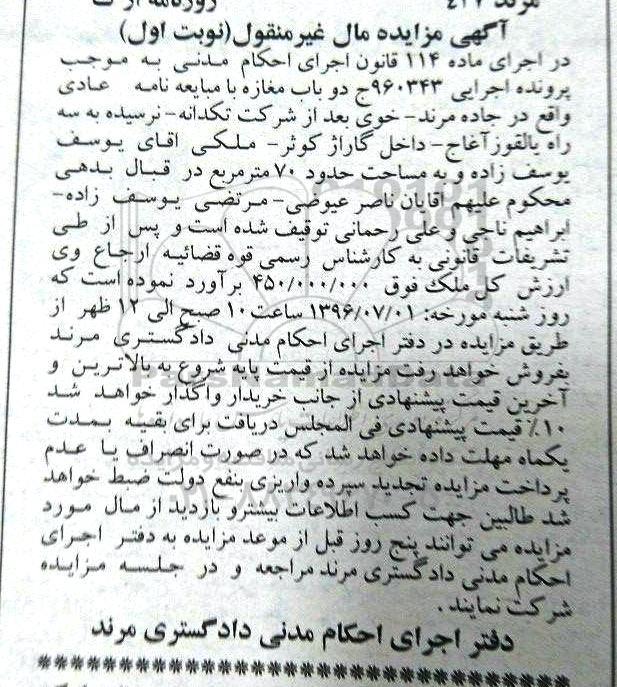 مرند ٤٢٧
روزنامه ارک
آگهی مزایده مال غیرمنقول(نوبت اول)
در اجرای ماده ۱۱۴ قانون اجرای احکام مدنی به موجب
پرونده اجرایی ۹۶۰۳۴۳ج دو باب مغازه با مبایعه نامه عادی
واقع در جاده مرند- خوی بعد از شرکت تکدانه- نرسیده به سه
راه یالقوزآغاج- داخل گاراژ کوثر- ملکی اقای یوسف
یوسف زاده و به مساحت حدود ۷۰ مترمربع در قبال بدهی
محکوم علیهم اقایان ناصر عیوضی- مرتضی یوسف زاده-
ابراهیم ناجی و علی رحمانی توقیف شده است و پس از طی
تشریفات قانونی به کارشناس رسمی قوه قضائیه ارجاع وی
ارزش کل ملک فوق ۴۵۰/۰۰۰/۰۰۰ برآورد نموده است که
روز شنبه مورخه: ۱۳۹۶/۰۷/۰۱ ساعت ۱۰ صبح الی ۱۲ ظهر از
طریق مزایده در دفتر اجرای احکام مدنی دادگستری مرند
بفروش خواهد رفت مزایده از قیمت پایه شروع به بالاترین و
آخرین قیمت پیشنهادی از جانب خریدار واگذار خواهد شد
۱۰٪ قیمت پیشنهادی فی المجلس دریافت برای بقیه بمدت
یکماه مهلت داده خواهد شد که در صورت انصراف یا عدم
پرداخت مزایده تجدید سپرده واریزی بنفع دولت ضبط خواهد
شد طالبین جهت کسب اطلاعات بیشترو بازدید از مال مورد
مزایده می توانند پنج روز قبل از موعد مزایده به دفتر اجرای
احکام مدنی دادگستری مرند مراجعه و در جلسه مزایده
شرکت نمایند.
دفتر اجرای احکام مدنی دادگستری مرند